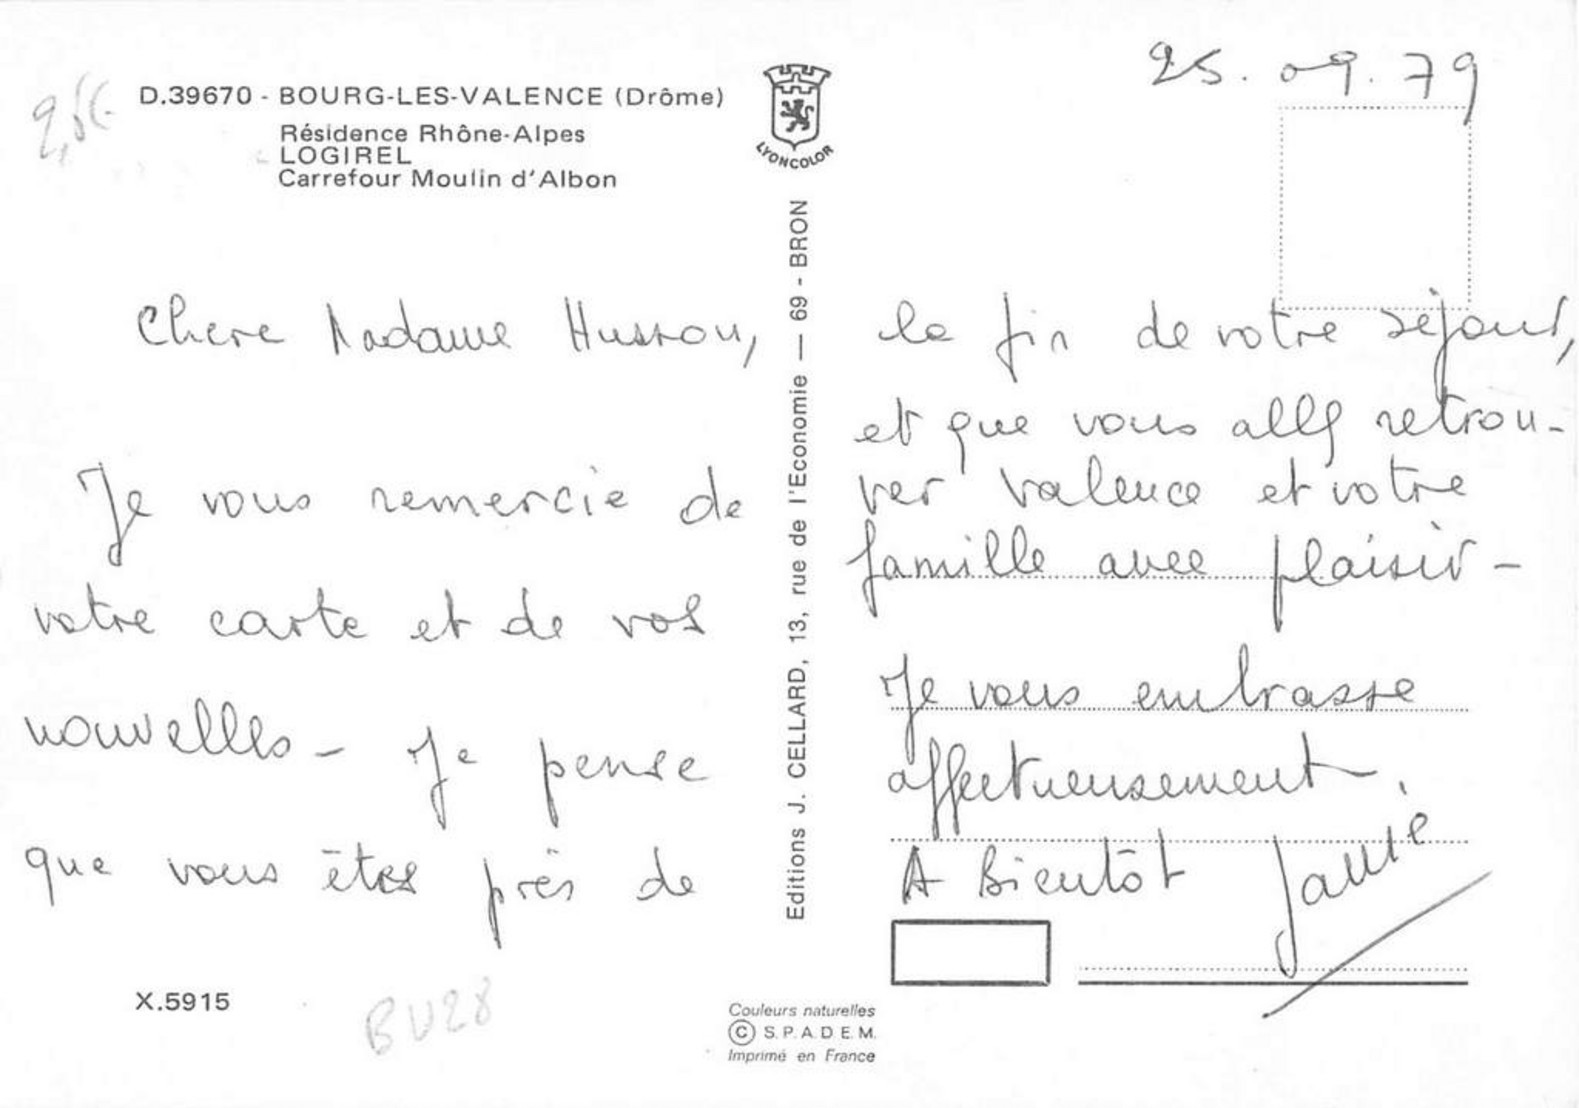 25.09.79
2,5€
D.39670 - BOURG-LES-VALENCE (Drôme)
Résidence Rhône-Alpes
LOGIREL
Carrefour Moulin d'Albon
LYONCOLOR
Chere Madame Husson,
Je vous remercie de
votre carte et de vos
nouvelles - Je pense
que vous êtes près de
la fin de votre séjour,
et que vous allez retrou-
ver Valence et votre
famille avec plaisir -
Je vous embrasse
affectueusement.
A Bientôt
Editions J. CELLARD, 13, rue de l'Economie — 69 - BRON
X.5915
BV28
Couleurs naturelles
© S.P.A.D.E.M.
Imprimé en France